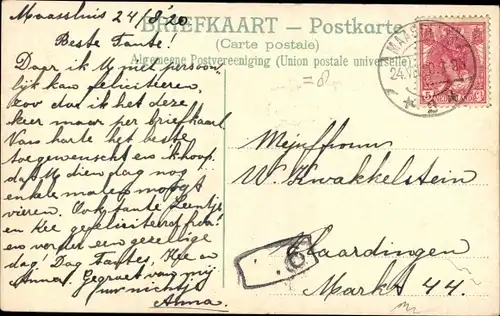 Maassluis 24/8'20
BRIEFKAART — Postkarte
(Carte postale)
Algemeene Postvereeniging (Union postale universelle)
MAAS
24.VIII
5
Beste Tante!
Daar ik U niet persoon-
lijk kan feliciteeren,
zoo dat ik het deze
keer maar per briefkaart.
Van harte het beste
toegewenscht en 'k hoop
dat U dien dag nog
enkele malen moogt
vieren. Ook tante Leentje
en Kee gefeliciteerd hoor!
en verder een gezellige
dag! Dag Tantes, Kee en
Anna. Gegroet van mij
uw nichtje
Anna.
Mejuffrouw
W. Kwakkelstein
Vlaardingen
Markt 44.